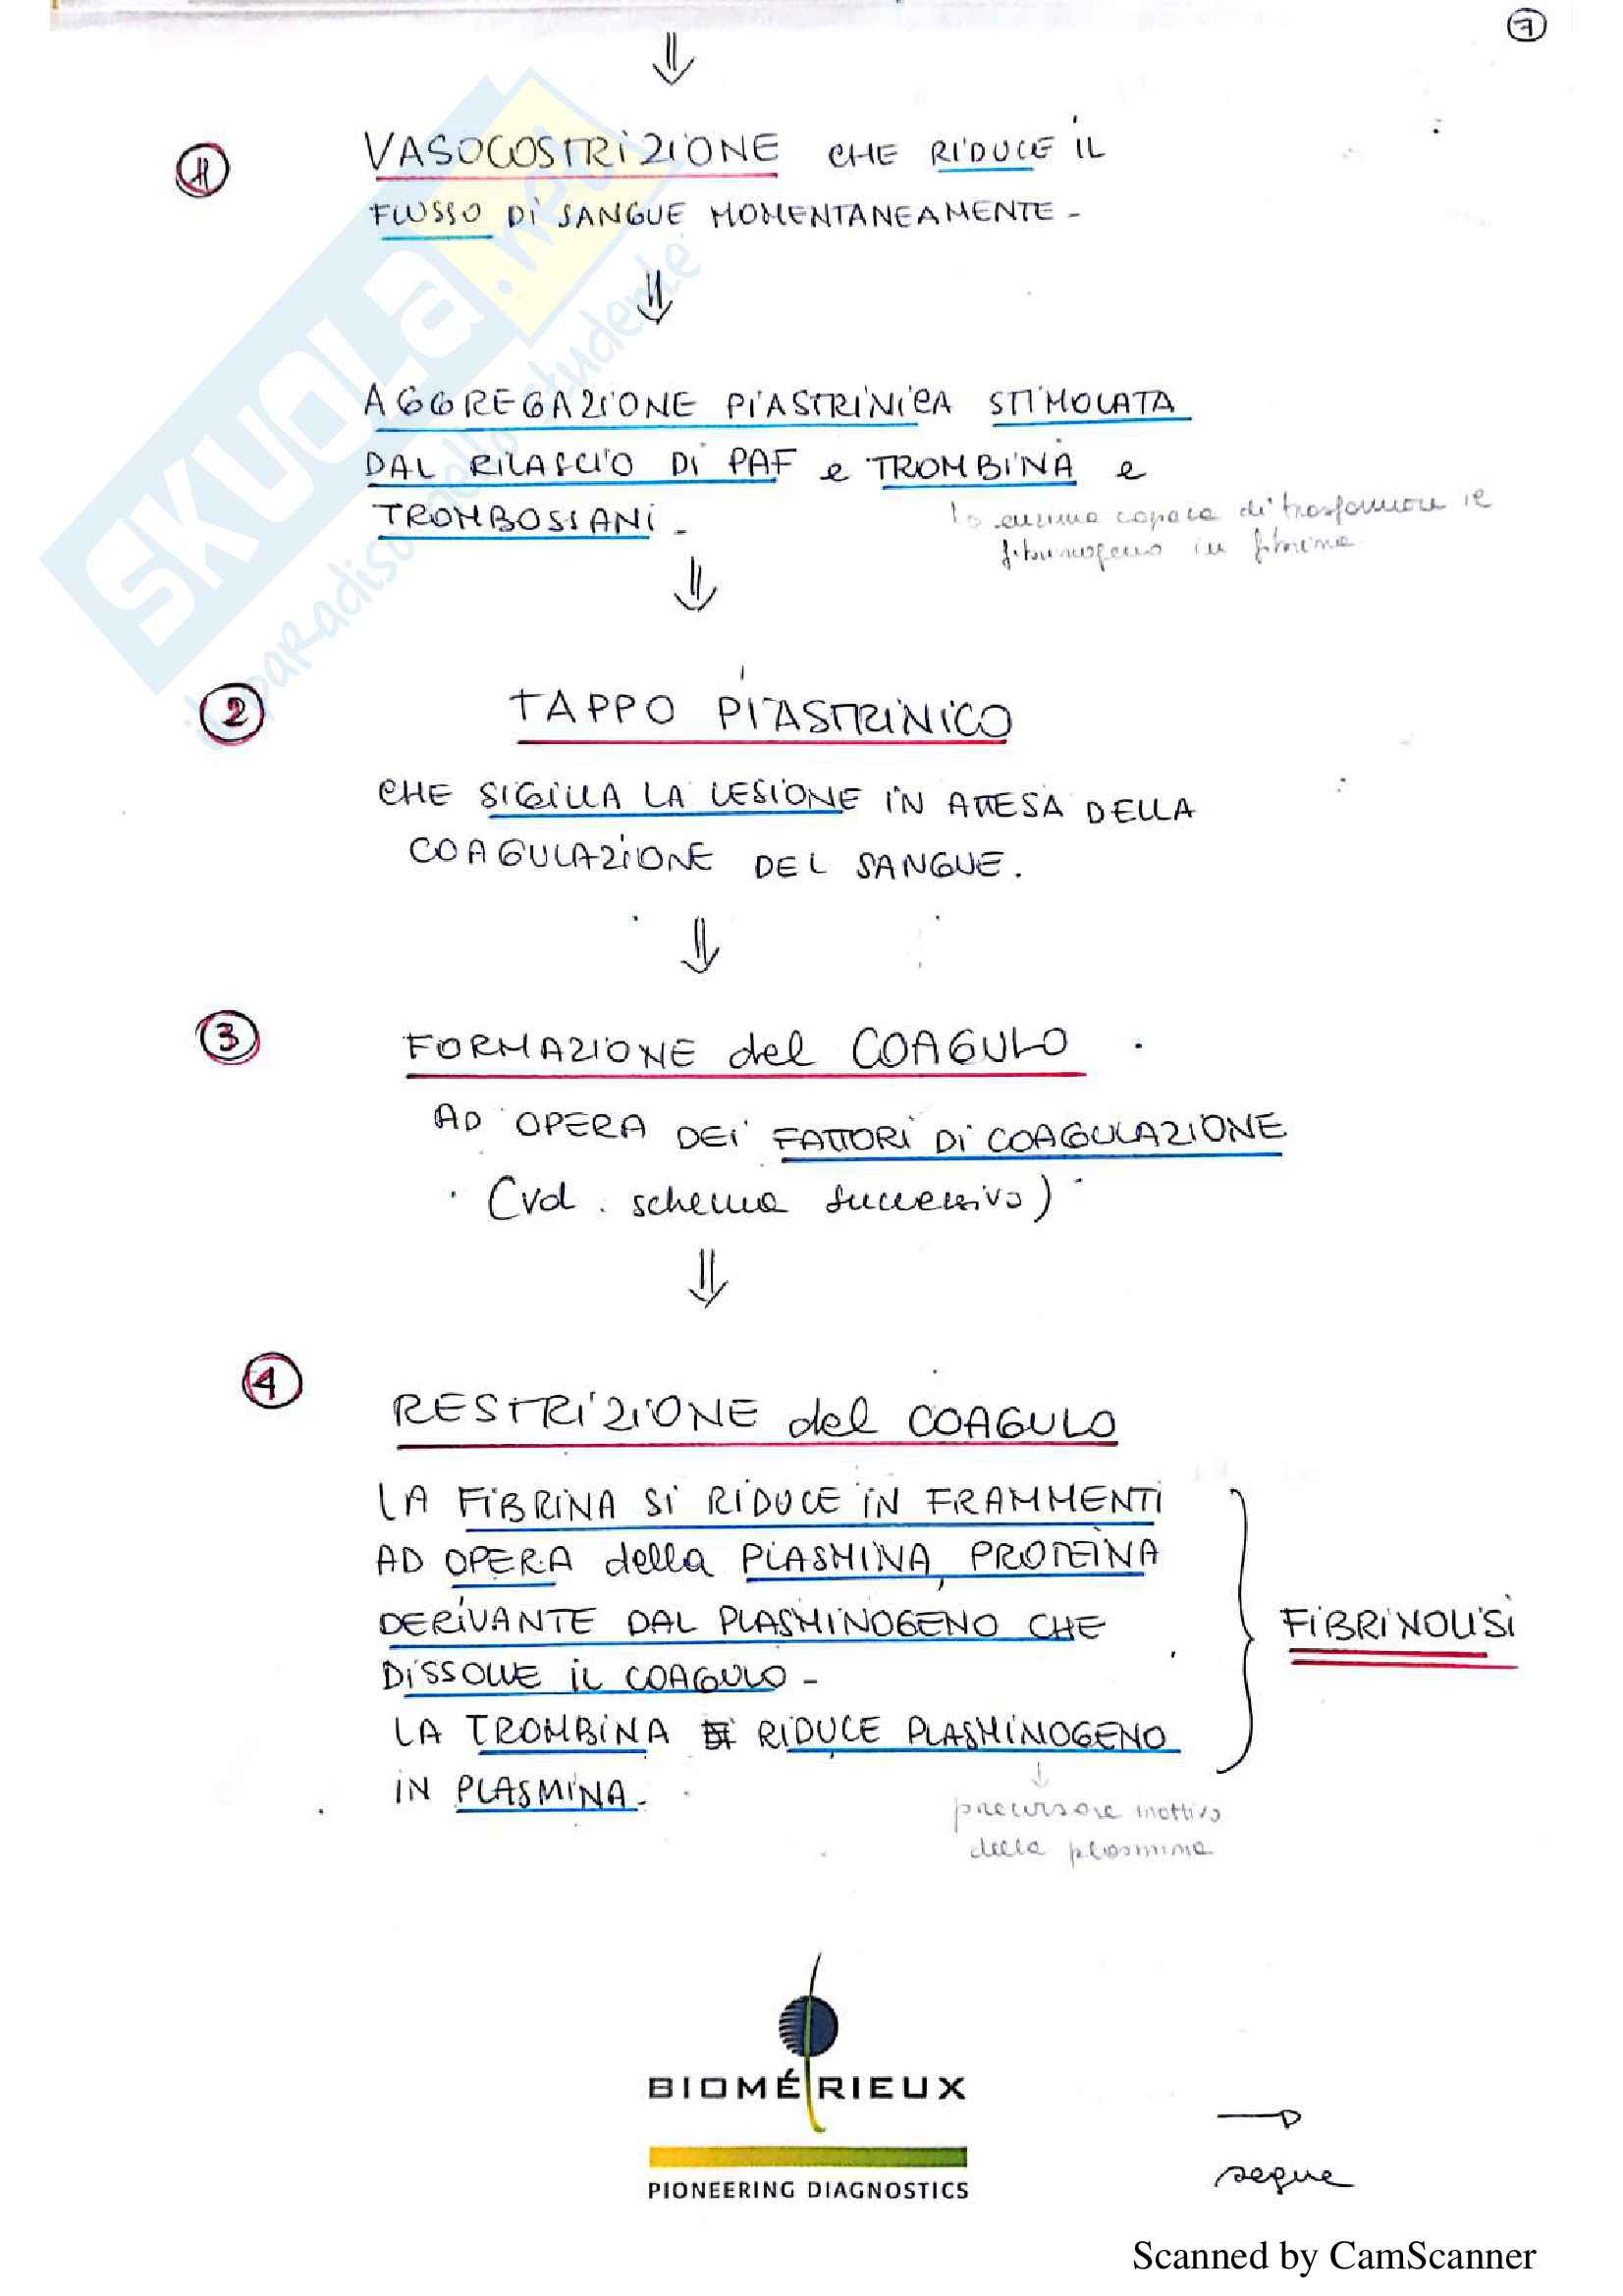 7
1
VASOCOSTRIZIONE CHE RIDUCE IL
FLUSSO DI SANGUE MOMENTANEAMENTE -
AGGREGAZIONE PIASTRINICA STIMOLATA
DAL RILASCIO DI PAF e TROMBINA e
TROMBOSSANI -
enzima capace di trasformare il
fibrinogeno in fibrina
2
TAPPO PIASTRINICO
CHE SIGILLA LA LESIONE IN ATTESA DELLA
COAGULAZIONE DEL SANGUE.
3
FORMAZIONE del COAGULO
AD OPERA DEI FATTORI DI COAGULAZIONE
(vd. schema successivo)
4
RESTRIZIONE del COAGULO
LA FIBRINA SI RIDUCE IN FRAMMENTI
AD OPERA della PLASMINA, PROTEINA
DERIVANTE DAL PLASMINOGENO CHE
DISSOLVE IL COAGULO -
LA TROMBINA RIDUCE PLASMINOGENO
IN PLASMINA -
FIBRINOLISI
precursore inattivo
della plasmina
BIOMÉRIEUX
PIONEERING DIAGNOSTICS
segue
Scanned by CamScanner
SKUOLA.net
il paradiso dello studente